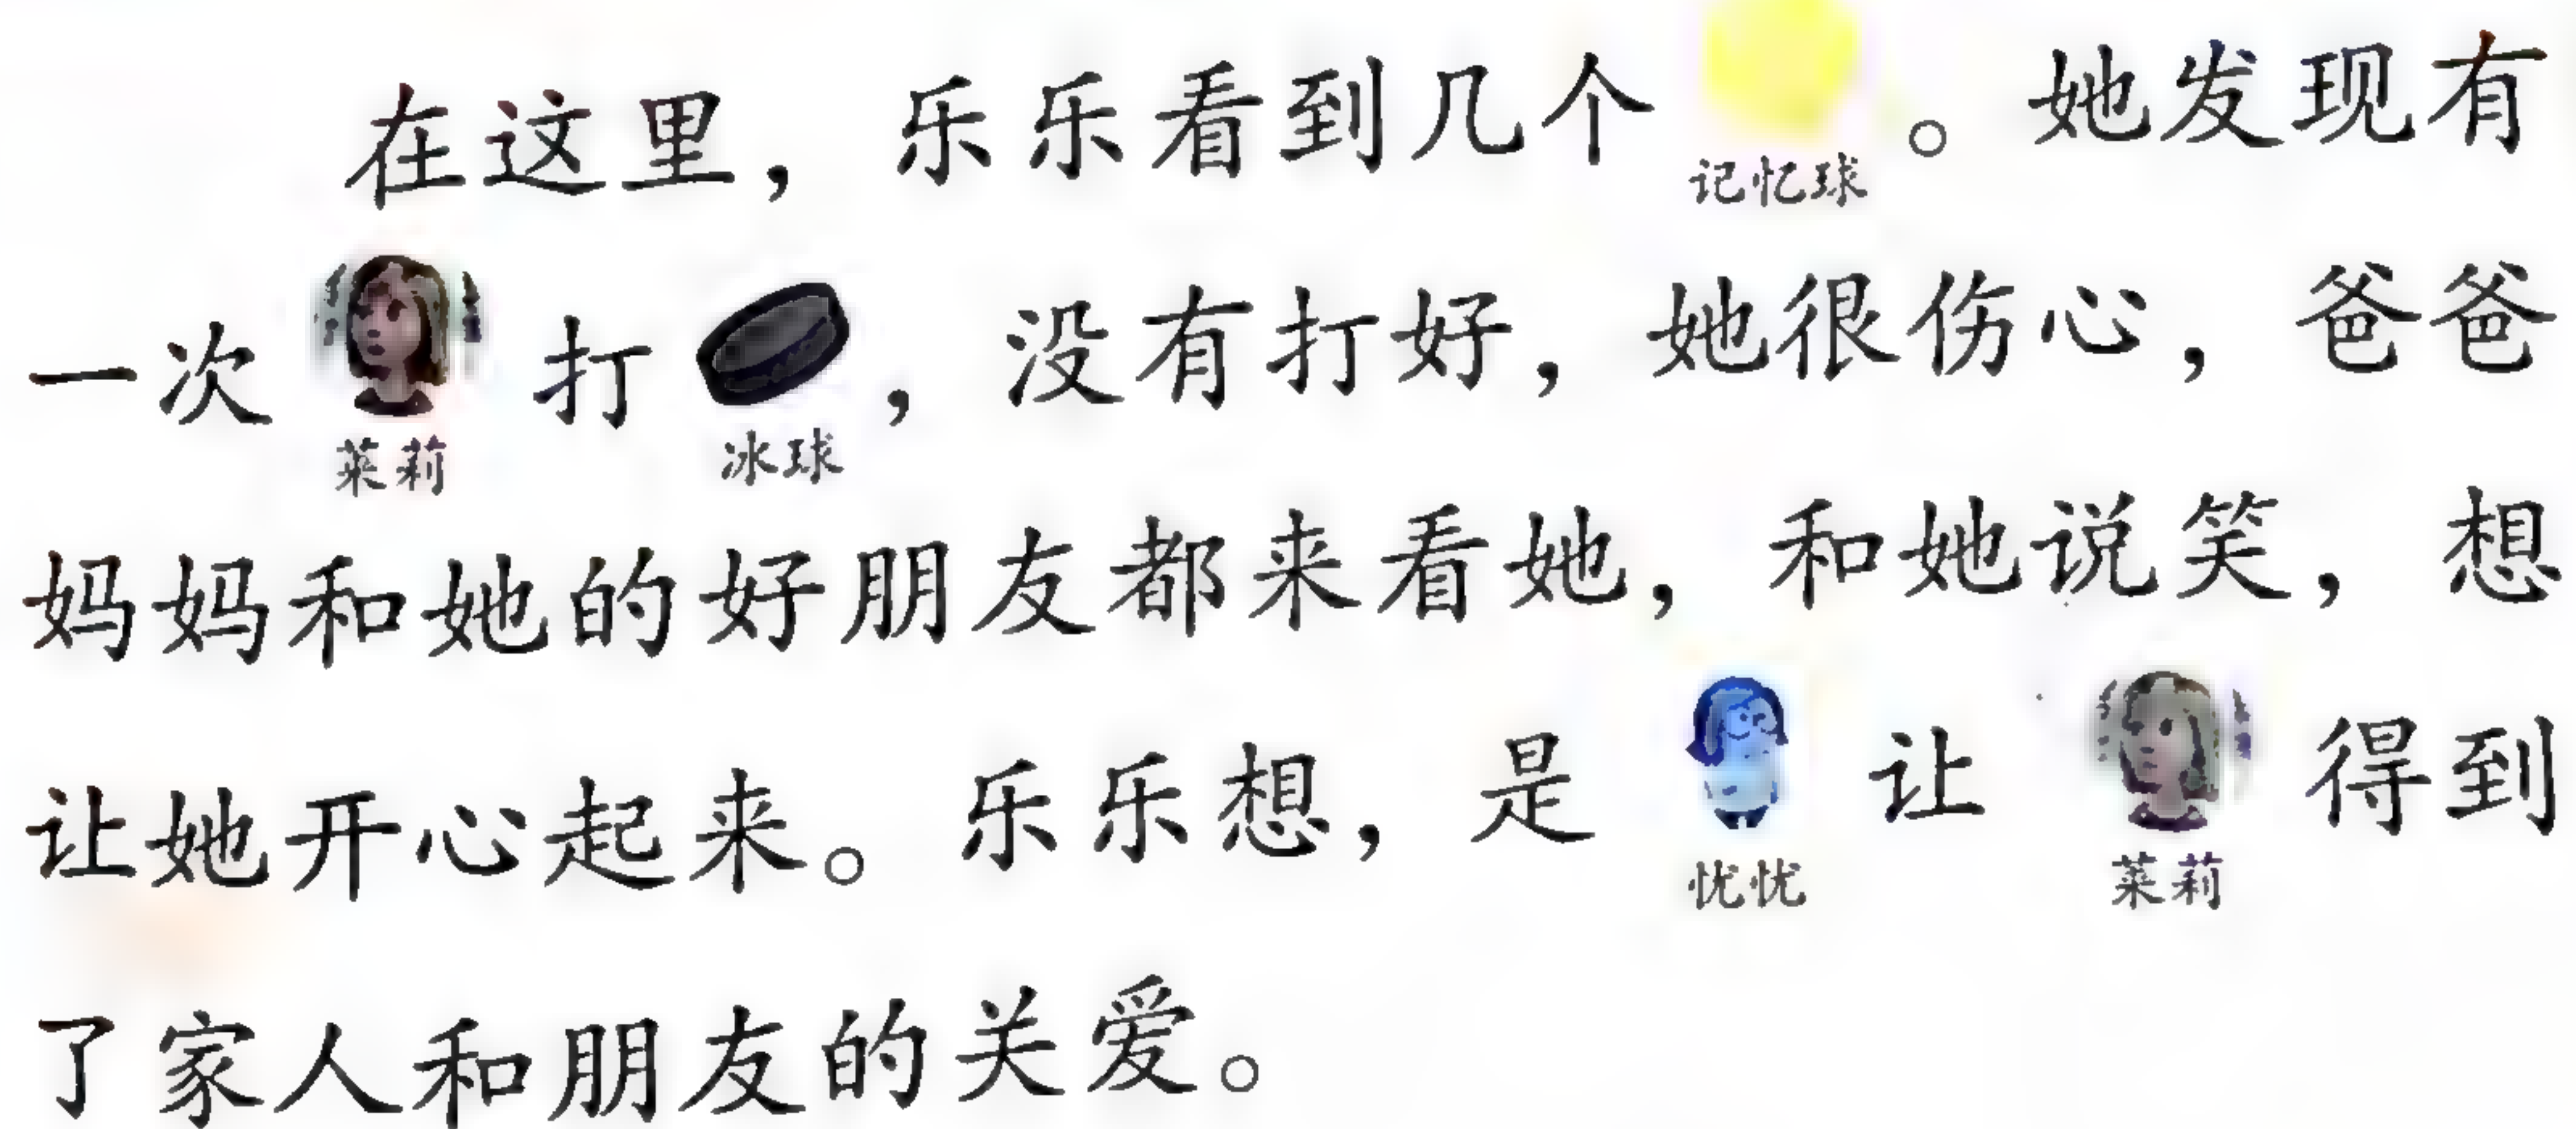 在这里，乐乐看到几个记忆球。她发现有
一次莱莉打冰球，没有打好，她很伤心，爸爸
妈妈和她的好朋友都来看她，和她说笑，想
让她开心起来。乐乐想，是忧忧让莱莉得到
了家人和朋友的关爱。